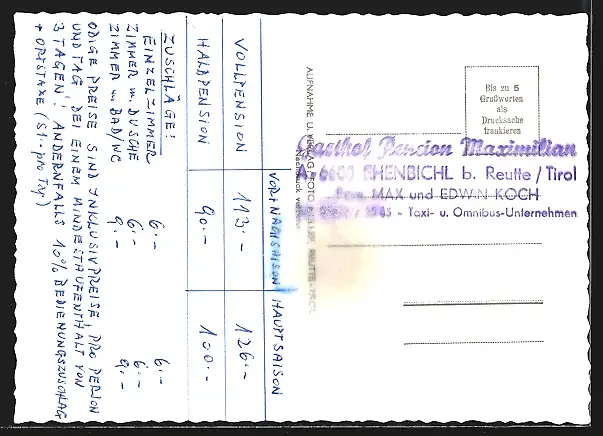 VOR+NACHSAISON HAUPTSAISON
VOLLPENSION 113.- 126.-
HALBPENSION 90.- 100.-
ZUSCHLÄGE:
EINZELZIMMER 6.- 6.-
ZIMMER m. DUSCHE 6.- 6.-
ZIMMER m. BAD/WC 9.- 9.-
OBIGE PREISE SIND INKLUSIVPREISE, PRO PERSON
UND TAG BEI EINEM MINDESTAUFENTHALT VON
3 TAGEN! ANDERNFALLS 10% BEDIENUNGSZUSCHLAG
+ ORTSTAXE (S1.- pro Tag)
AUFNAHME U. VERLAG FOTO REUTTE - TIROL
Nachdruck verboten
Bis zu 5
Grußworten
als
Drucksache
frankieren
Gasthof Pension Maximilian
A-6600 EHENBICHL b. Reutte / Tirol
MAX und EDWIN KOCH
- Taxi- u. Omnibus-Unternehmen